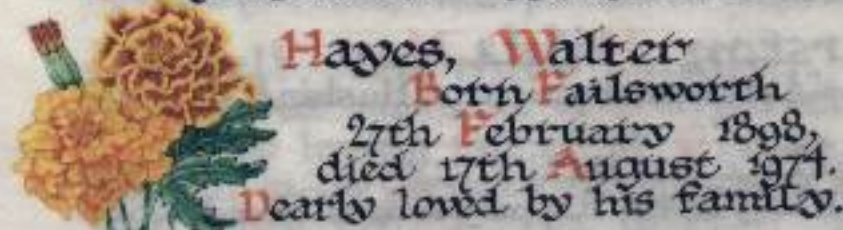 Hayes, Walter
Born Failsworth
27th February 1898,
died 17th August 1974.
Dearly loved by his family.